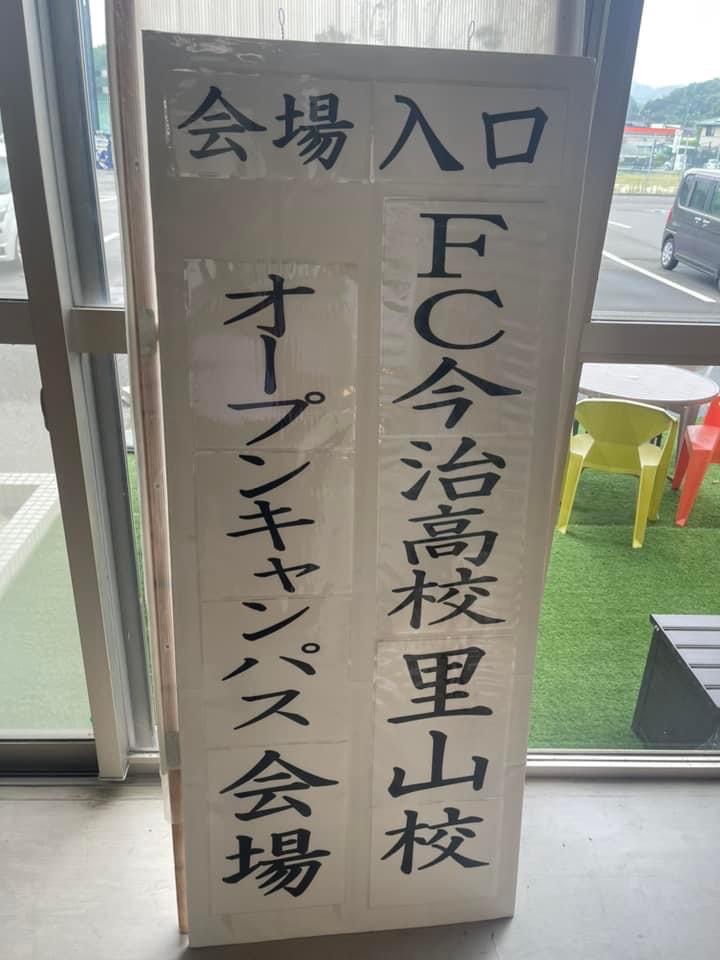 会場入口
FC今治高校里山校
オープンキャンパス会場